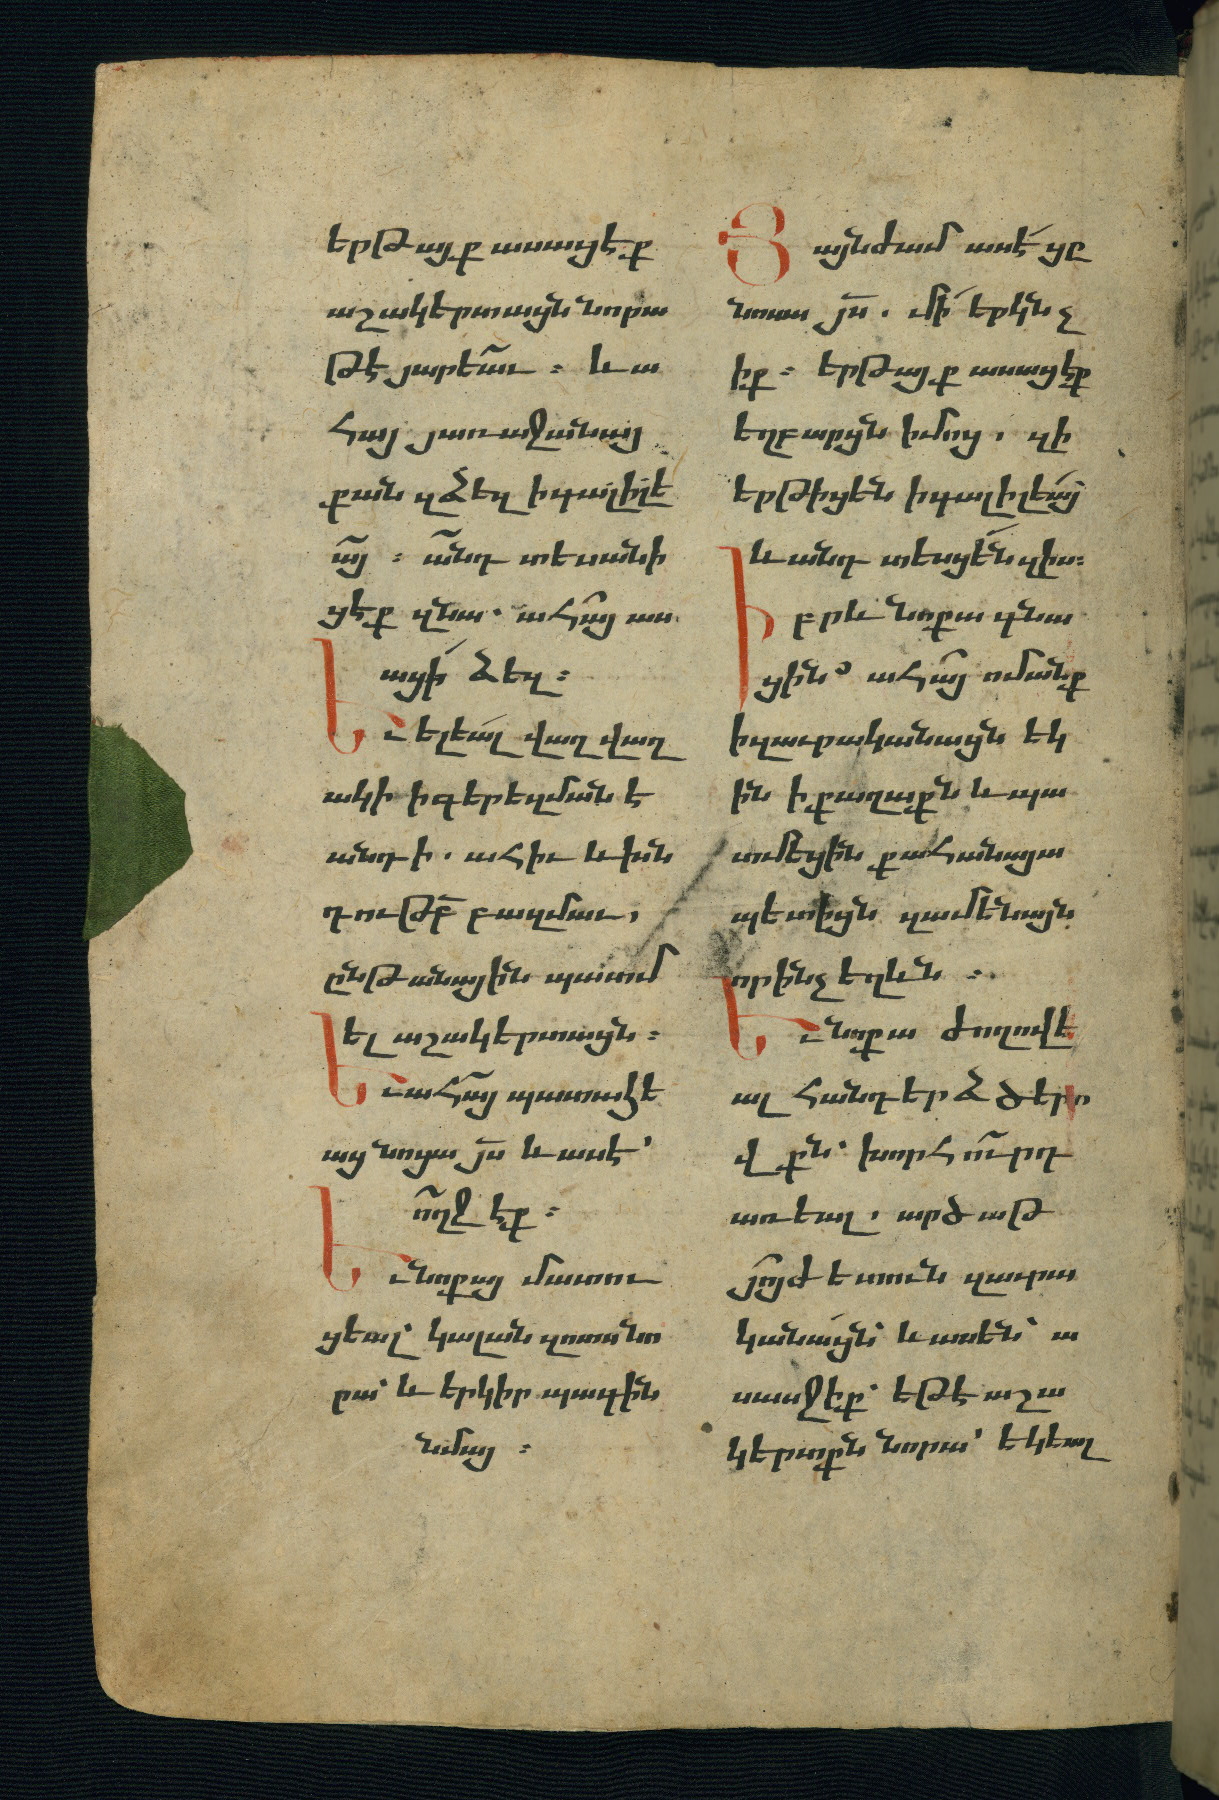 երթայք ասացէք
աշակերտացն նորա
թէ յարեաւ ։ և ա
հայ յառաջանայ
քան զձեզ ի գալիլե
այ ։ անդ տեսանի
ցէք զնա · ահայ աս
ացի ձեզ ։
Եւ ելեալ վաղ վաղ
ակի ի գերեզմանէ
անտի · ահիւ և խն
դութբ բազմաւ ,
ընթանային պատմ
ել աշակերտացն ։
Եւ ահայ պատահե
աց նոցա յս և ասէ՝
ո՜ղջ էք ։
Եւ նոքայ մատու
ցեալ՝ կալան զոտս նո
րա՝ և երկիր պագին
նմայ ։
Յայնժամ ասէ ցը
նոսա յս . մի երկնչ
իք ։ երթայք ասացէք
եղբարցն իմոց , զի
երթիցեն ի գալիլեայ
և անդ տեսցեն զիս ։
Իբրև նոքա գնա
ցին՝ ահայ ոմանք
ի զաւրականացն եկ
ին ի քաղաքն և պա
տմեցին քահանայա
պետիցն զամենայն
որինչ եղևն ։
Եւ նոքա ժողովե
ալ հանդերձ ծերո
վքն՝ խորհուրդ
առեալ , արծաթ
յոյժ ետուն զաւրա
կանացն՝ և ասեն՝ ա
սասջիք՝ եթէ աշա
կերտքն նորա՝ եկեալ